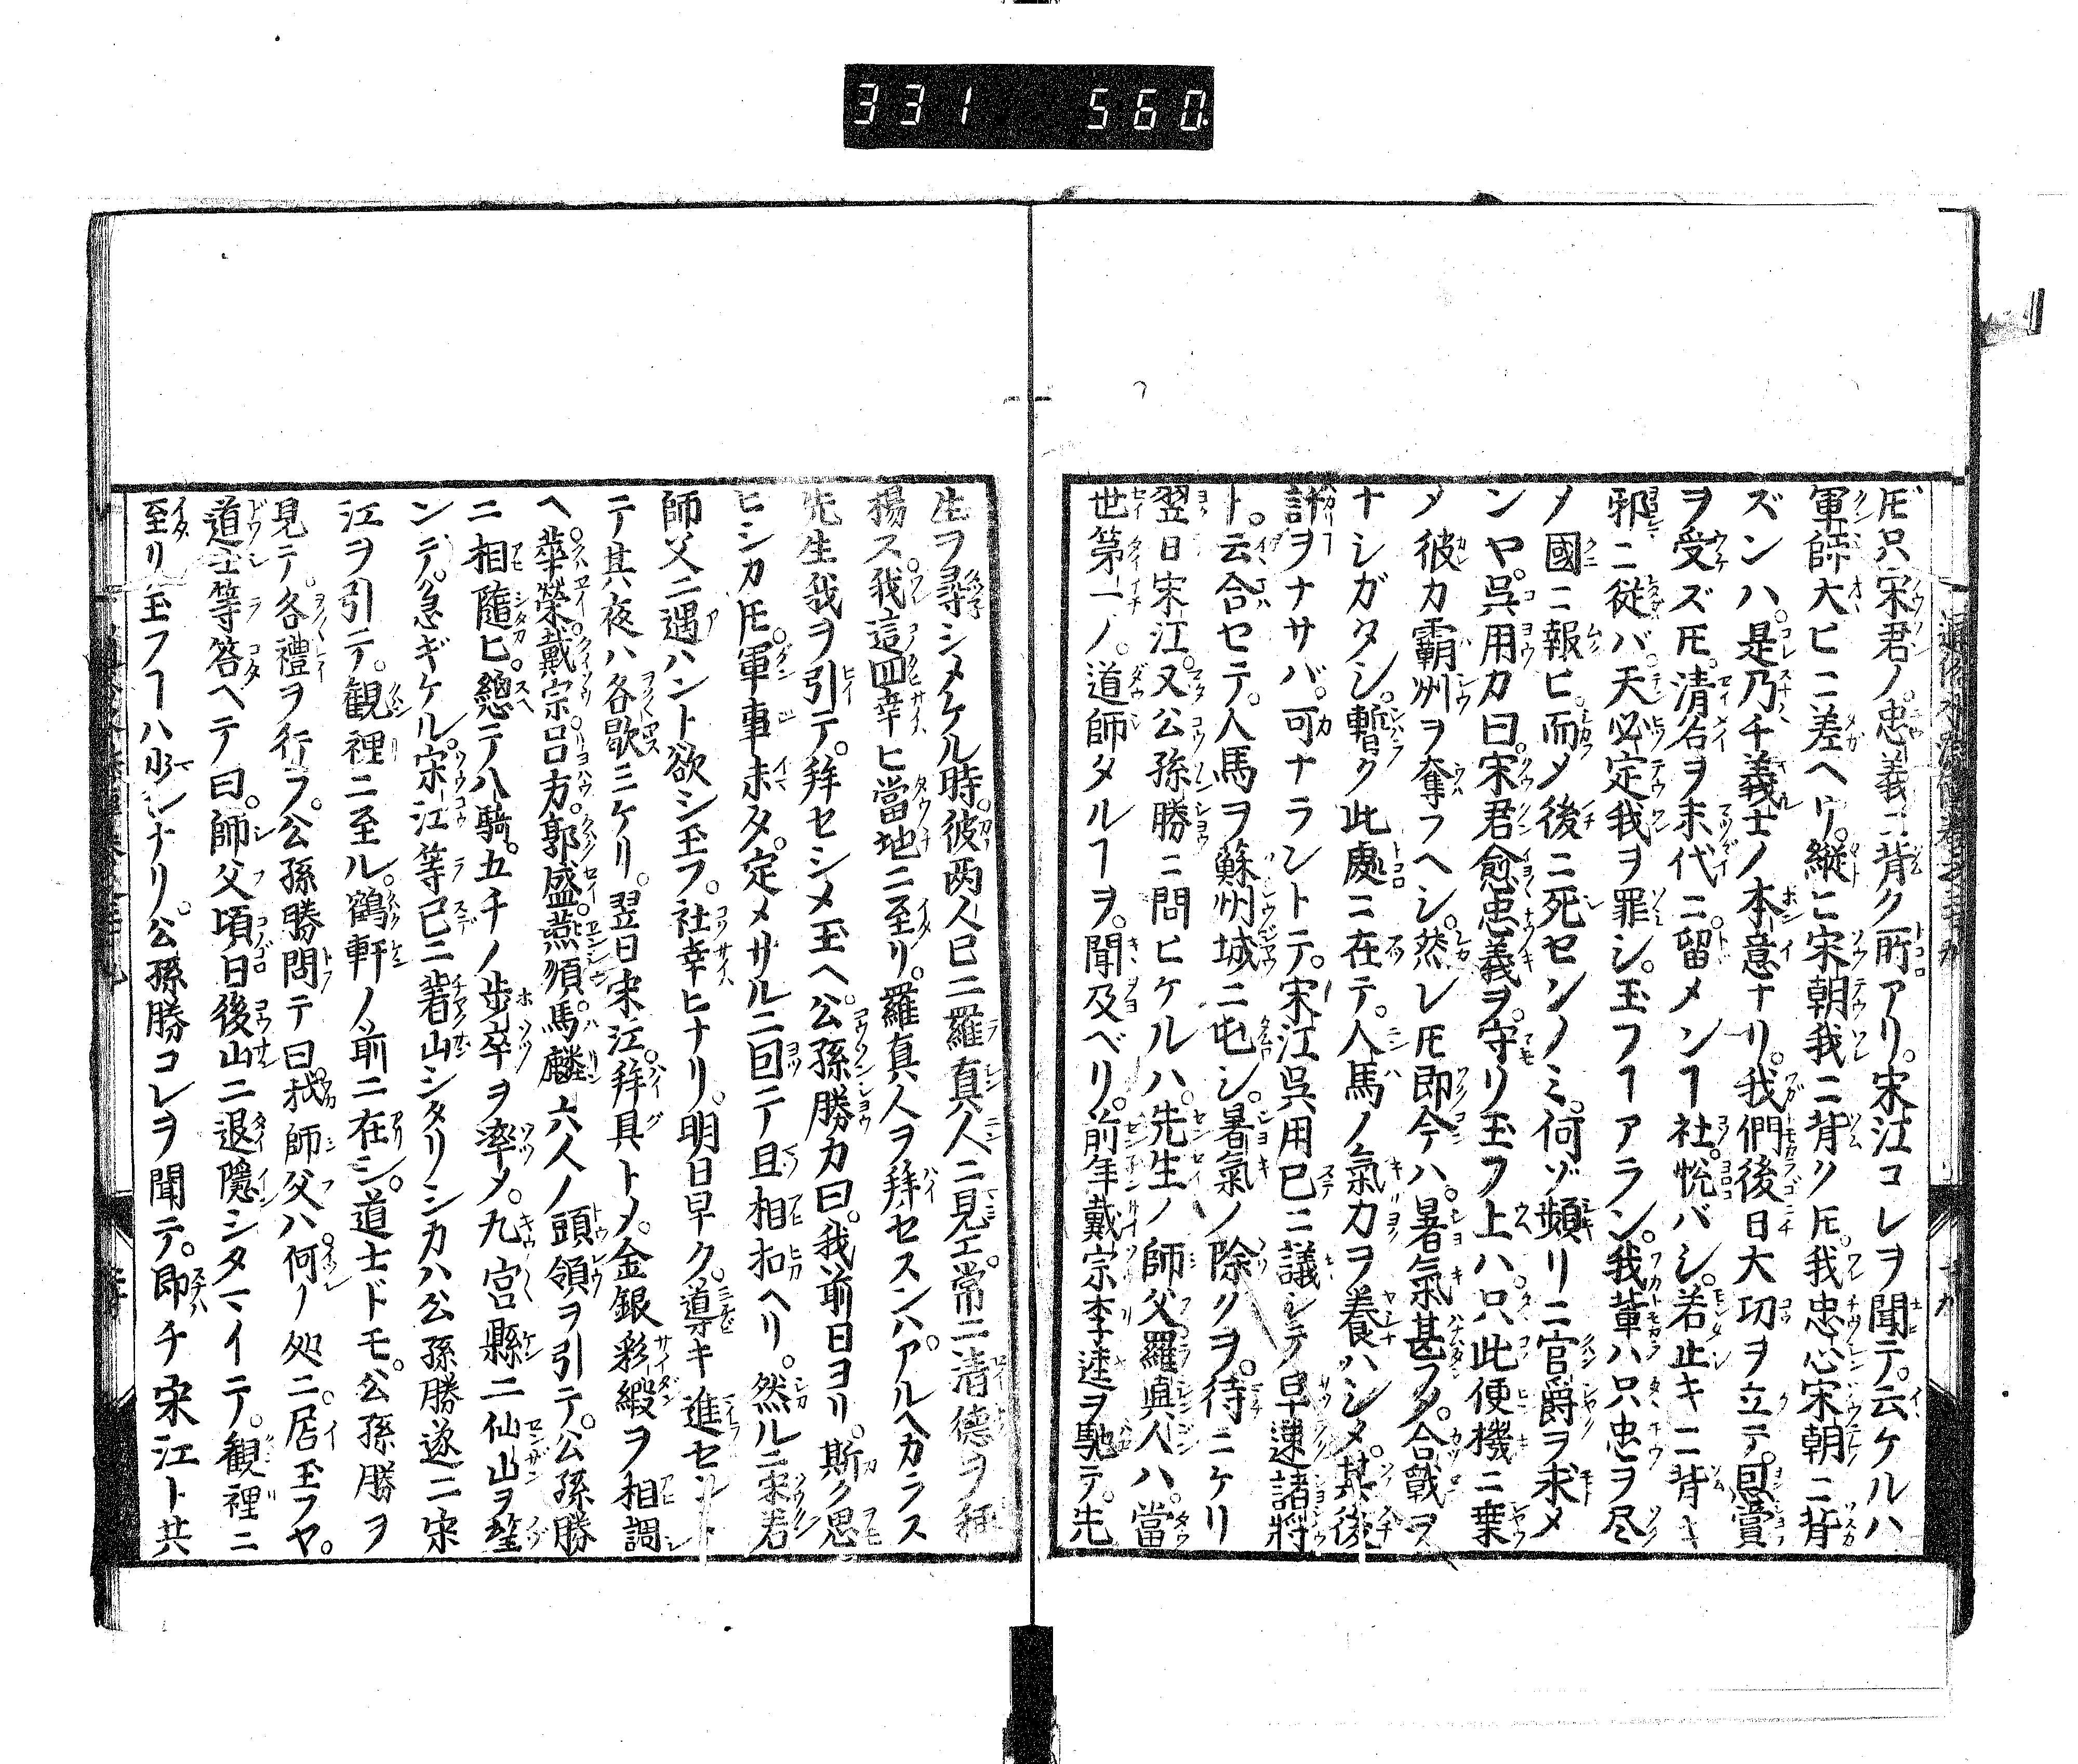 331 560
𪜈只宋君ノ忠義ニ背ク所アリ。宋江コレヲ聞テ。云ケルハ
軍師大ヒニ差ヘリ。縦ヒ宋朝我ニ背ク𪜈。我忠心宋朝ニ背
ズンハ。是乃チ義士ノ本意ナリ。我們後日大功ヲ立テ。恩賞
ヲ受ズ𪜈。清名ヲ末代ニ留メンヿ社。悦バシ。若止キニ背キ
邪ニ従バ。天必定我ヲ罪シ。玉フヿアラン。我輩ハ只忠ヲ尽
ノ國ニ報ヒ。而メ後ニ死センノミ。何ゾ頻リニ官爵ヲ求メ
ンヤ。呉用カ曰。宋君愈忠義ヲ。守リ玉フ上ハ。只此便機ニ乗
メ彼カ霸州ヲ奪フヘシ。然レ𪜈即今ハ。暑氣甚フタ。合戰ヲ
ナシガタシ。暫ク此處ニ在テ。人馬ノ氣力ヲ養ハシメ。其後
計ヲナサバ。可ナラントテ。宋江呉用已ニ議シテ早速諸將
ト。云合セテ。人馬ヲ蘇州城ニ屯シ。暑氣ノ除クヲ。待ニケリ
翌日宋江。又公孫勝ニ問ヒケルハ。先生ノ師父羅真人ハ。當
世第一ノ。道師タルヿヲ。聞及ベリ。前年戴宗李逵ヲ馳テ。先
生ヲ尋シメケル時。彼两人已ニ羅真人ニ見エ。常ニ清德ヲ稱
揚ス。我這回幸ヒ當地ニ至リ。羅真人ヲ拜セスンハ。アルヘカラス
先生我ヲ引テ。拜セシメ玉ヘ。公孫勝カ曰。我前日ヨリ。斯ク思
ヒシカ𪜈。軍事未タ。定メサルニ回テ且相扣ヘリ。然ルニ宋君
師父ニ遇ハント欲シ玉フ。社幸ヒナリ。明日早ク。導キ進セント
テ其夜ハ各歇ミケリ。翌日宋江。拜具トメ。金銀彩緞ヲ相調
ヘ。花榮。戴宗。呂方。郭盛。燕順。馬麟六人ノ頭領ヲ引テ。公孫勝
ニ相隨ヒ。總テ八騎。五千ノ歩卒ヲ率メ。九宮縣二仙山ヲ望
ンテ。急ギケル。宋江等已ニ着山シタリシカハ公孫勝遂ニ宋
江ヲ引テ。観裡ニ至ル。鶴軒ノ前ニ在シ。道士ドモ。公孫勝ヲ
見テ。各禮ヲ行フ。公孫勝問テ曰。我師父ハ。何ノ処ニ。居玉フヤ。
道士等答ヘテ曰。師父頃日後山ニ退隠シタマイテ。観裡ニ
至リ玉フヿハ少ンナリ。公孫勝コレヲ聞テ。即チ宋江ト共